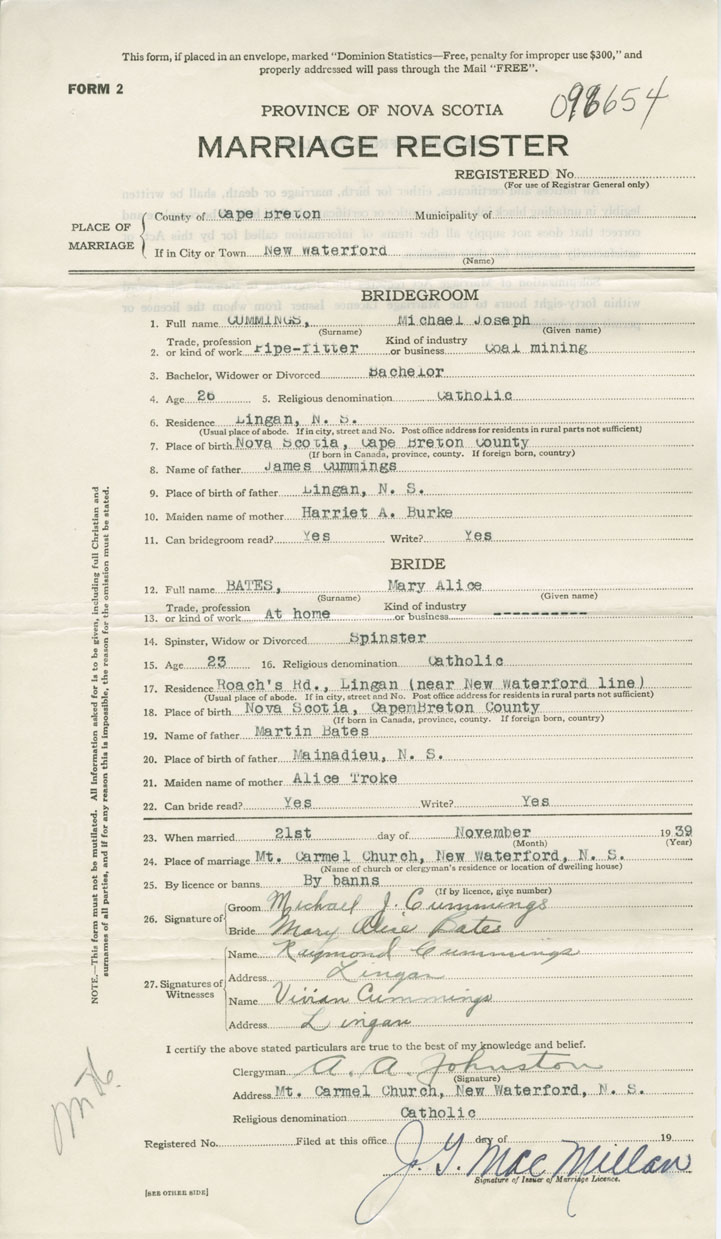 This form, if placed in an envelope, marked "Dominion Statistics—Free, penalty for improper use $300," and
properly addressed will pass through the Mail "FREE".
FORM 2
098654
PROVINCE OF NOVA SCOTIA
MARRIAGE REGISTER
REGISTERED No.
(For use of Registrar General only)
PLACE OF MARRIAGE
County of Cape Breton Municipality of
If in City or Town New Waterford
(Name)
BRIDEGROOM
1. Full name CUMMINGS, Michael Joseph
(Surname) (Given name)
2. Trade, profession or kind of work Pipe-fitter Kind of industry or business Coal mining
3. Bachelor, Widower or Divorced Bachelor
4. Age 26 5. Religious denomination Catholic
6. Residence Lingan, N. S.
(Usual place of abode. If in city, street and No. Post office address for residents in rural parts not sufficient)
7. Place of birth Nova Scotia, Cape Breton County
(If born in Canada, province, county. If foreign born, country)
8. Name of father James Cummings
9. Place of birth of father Lingan, N. S.
10. Maiden name of mother Harriet A. Burke
11. Can bridegroom read? Yes Write? Yes
BRIDE
12. Full name BATES, Mary Alice
(Surname) (Given name)
13. Trade, profession or kind of work At home Kind of industry or business ----------
14. Spinster, Widow or Divorced Spinster
15. Age 23 16. Religious denomination Catholic
17. Residence Roach's Rd., Lingan (near New Waterford line)
(Usual place of abode. If in city, street and No. Post office address for residents in rural parts not sufficient)
18. Place of birth Nova Scotia, CapemBreton County
(If born in Canada, province, county. If foreign born, country)
19. Name of father Martin Bates
20. Place of birth of father Mainadieu, N. S.
21. Maiden name of mother Alice Troke
22. Can bride read? Yes Write? Yes
23. When married 21st day of November 1939
(Month) (Year)
24. Place of marriage Mt. Carmel Church, New Waterford, N. S.
(Name of church or clergyman's residence or location of dwelling house)
25. By licence or banns By banns
(If by licence, give number)
26. Signature of
Groom Michael J. Cummings
Bride Mary Alice Bates
27. Signatures of Witnesses
Name Raymond Cummings
Address Lingan
Name Vivian Cummings
Address Lingan
I certify the above stated particulars are true to the best of my knowledge and belief.
Clergyman A. A. Johnston
(Signature)
Address Mt. Carmel Church, New Waterford, N. S.
Religious denomination Catholic
Registered No. Filed at this office day of 19
J. G. MacMillan
Signature of Issuer of Marriage Licence.
[SEE OTHER SIDE]
NOTE.—This form must not be mutilated. All information asked for is to be given, including full Christian and
surnames of all parties, and if for any reason this is impossible, the reason for the omission must be stated.